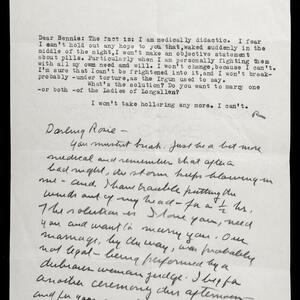 Dear Bennie: The fact is: I am medically addicted. I fear
I can't hold out any hope to you that, waked suddenly in the
middle of the night, I won't make an objective statement
about pills. Particularly when I am personally fighting them
with all my own need and will. I won't change, because I can't.
I'm sure that I can't be frightened into it, and I won't break-
probably-under torture, as the Irgun used to say.
What's the solution? Do you want to marry one
-or both -of the Ladies of Longallen?
I won't take hollaring any more. I can't.
Darling Rosie -
You mustn't break. Just be a bit more
medical and remember that after a
bad night, the storm keeps blowing in
me - and I have trouble putting the
winds out of my head - for a ½ hr.
The solution is I love you, need
you and want to marry you. Our
marriage, by the way, was probably
not legal - being performed by a
dubious woman judge. I beg for
another ceremony this afternoon -
and for